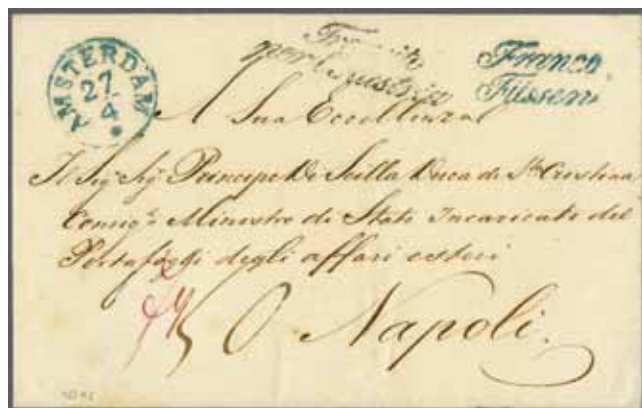 AMSTERDAM
27
4
Franco
Füssen
A Sua Eccellenza
Il Sig. Sig. Principe Di Scilla Duca di Sta. Cristina
Consigr. Ministro di Stato Incaricato del
Portafogli degli affari esteri
Napoli.